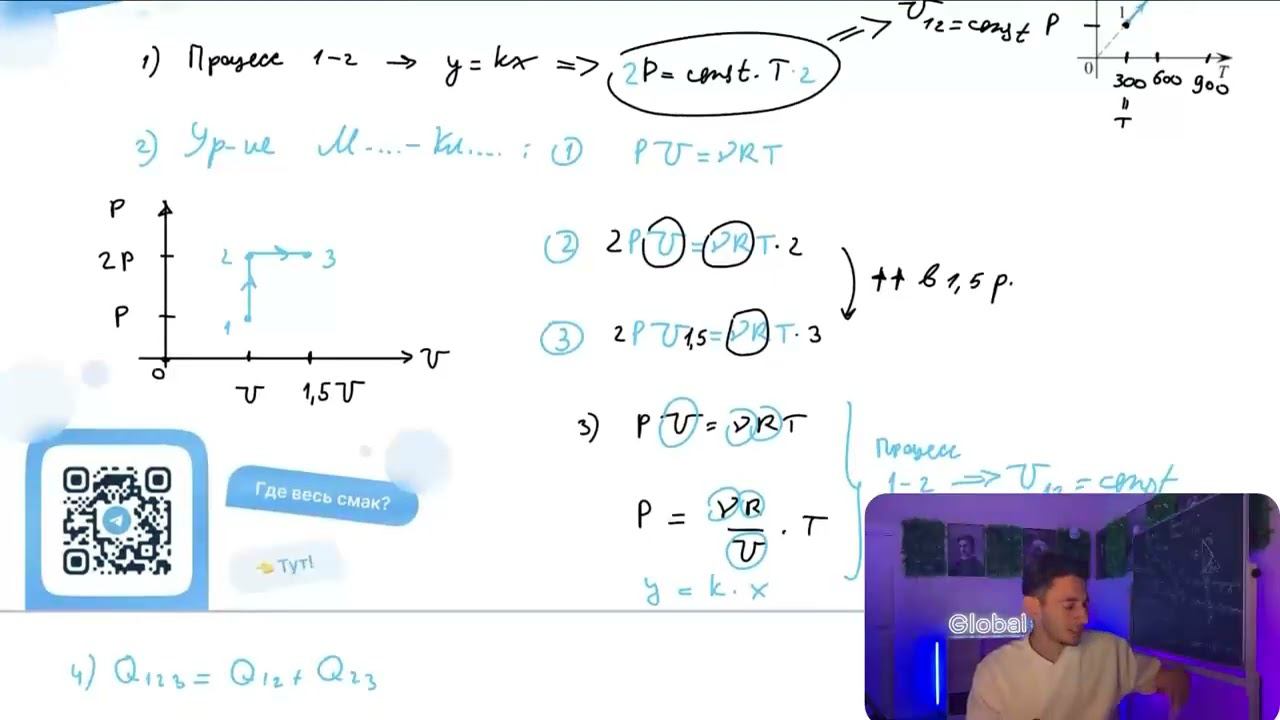 1) Процесс 1-2 → y = kx => 2P = const · T · 2 => V12 = const
P
1
0 300 600 900 T
॥
T
2) Ур-ие М....-Кл.... : ① PV = νRT
P
2P
P
2 3
1
0
V 1,5V
V
② 2PV = νRT · 2
③ 2PV1,5 = νRT · 3
↑↑ в 1,5 р.
3) PV = νRT
P = νR/V · T
y = k · x
Процесс
1-2 => V12 = const
Где весь смак?
👉 Тут!
Global
4) Q123 = Q12 + Q23